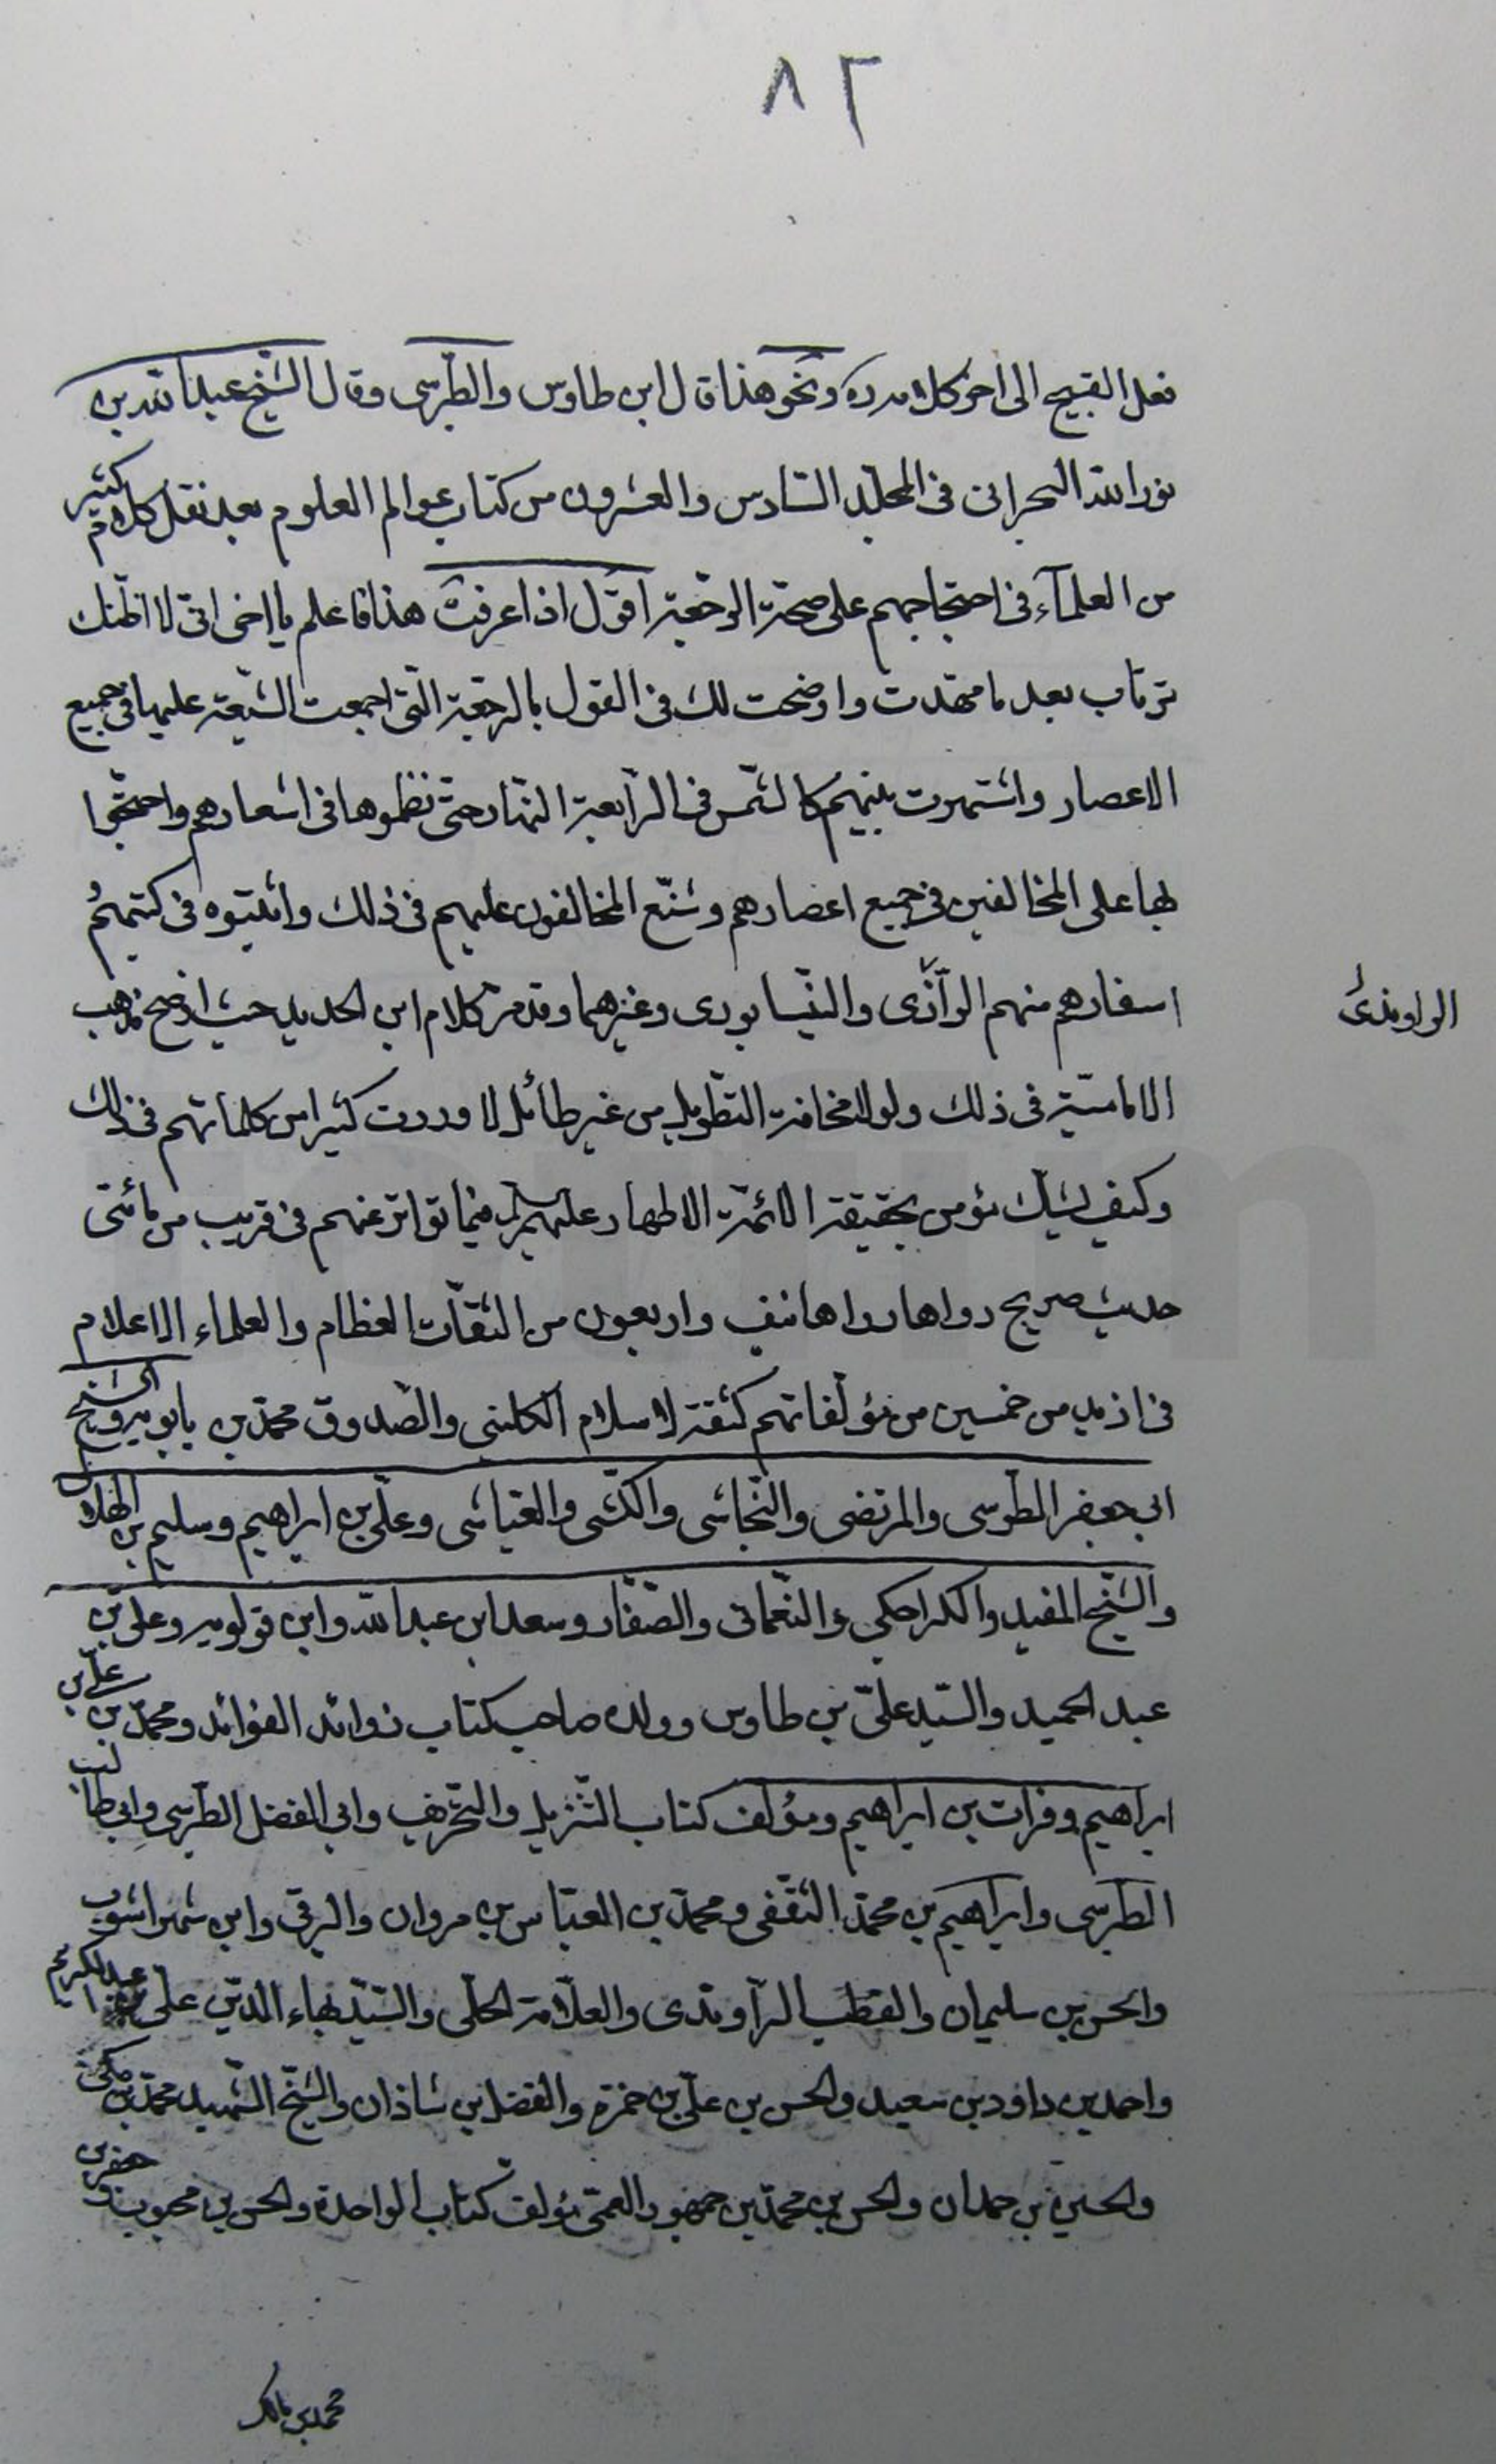 ٨٢
فعل القبيح الى اخر كلامه ره ونحو هذا قال ابن طاوس والطبرسى وقال الشيخ عبد الله بن
نور الله البحرانى فى المجلد السادس والعشرون من كتاب عوالم العلوم بعد نقل كلام كثير
من العلمآء فى احتجاجهم على صحة الرجعة اقول اذا عرفت هذا فاعلم يا اخى انى لا اظنك
ترتاب بعد ما مهدت واوضحت لك فى القول بالرجعة التى اجمعت الشيعة عليها فى جميع
الاعصار واشتهرت بينهم كالشمس فى الرابعة النهار حتى نظموها فى اشعارهم واحتجوا
بها على المخالفين فى جميع اعصارهم وشنع المخالفون عليهم فى ذلك واثبتوه فى كتبهم و
اسفارهم منهم الرازى والنيسابورى وغيرهما وقد مر كلام ابن الحديد حيث اوضح مذهب
الراوندى
الامامية فى ذلك ولولا مخافة التطويل من غير طائل لاوردت كثيرا من كلماتهم فى ذلك
وكيف يشك مؤمن بحقيقة الائمة الاطهار عليهم السلم فيما تواتر عنهم فى قريب من مائتى
حديث صريح رواها رواها نيف واربعون من الثقات العظام والعلماء الاعلام
فى ازيد من خمسين من مؤلفاتهم كثقة الاسلام الكلينى والصدوق محمد بن بابويه والشيخ
ابى جعفر الطوسى والمرتضى والنجاشى والكشى والعياشى وعلى بن ابراهيم وسليم بن الهلالى
والشيخ المفيد والكراجكى والنعمانى والصفار وسعد ابن عبد الله وابن قولويه وعلى بن
عبد الحميد والسيد على بن طاوس وولده صاحب كتاب زوائد الفوائد ومحمد بن على بن
ابراهيم وفرات بن ابراهيم ومؤلف كتاب التنزيل والتحريف وابى الفضل الطبرسى وابى طالب
الطبرسى وابراهيم بن محمد الثقفى ومحمد بن العباس بن مروان والبرقى وابن شهراشوب
والحسن بن سليمان والقطب الراوندى والعلامة الحلى والسيد بهاء الدين على بن عبد الكريم
واحمد بن داود بن سعيد والحسن بن على بن حمزة والفضل بن شاذان والشيخ الشهيد محمد بن مكى
والحسين بن حمدان والحسن بن محمد بن جمهور العمى مؤلف كتاب الواحدة والحسن بن محبوب وجعفر بن
محمد بن مالك